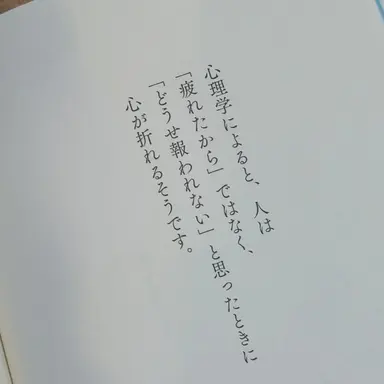 心理学によると、人は
「疲れたから」ではなく、
「どうせ報われない」と思ったときに
心が折れるそうです。